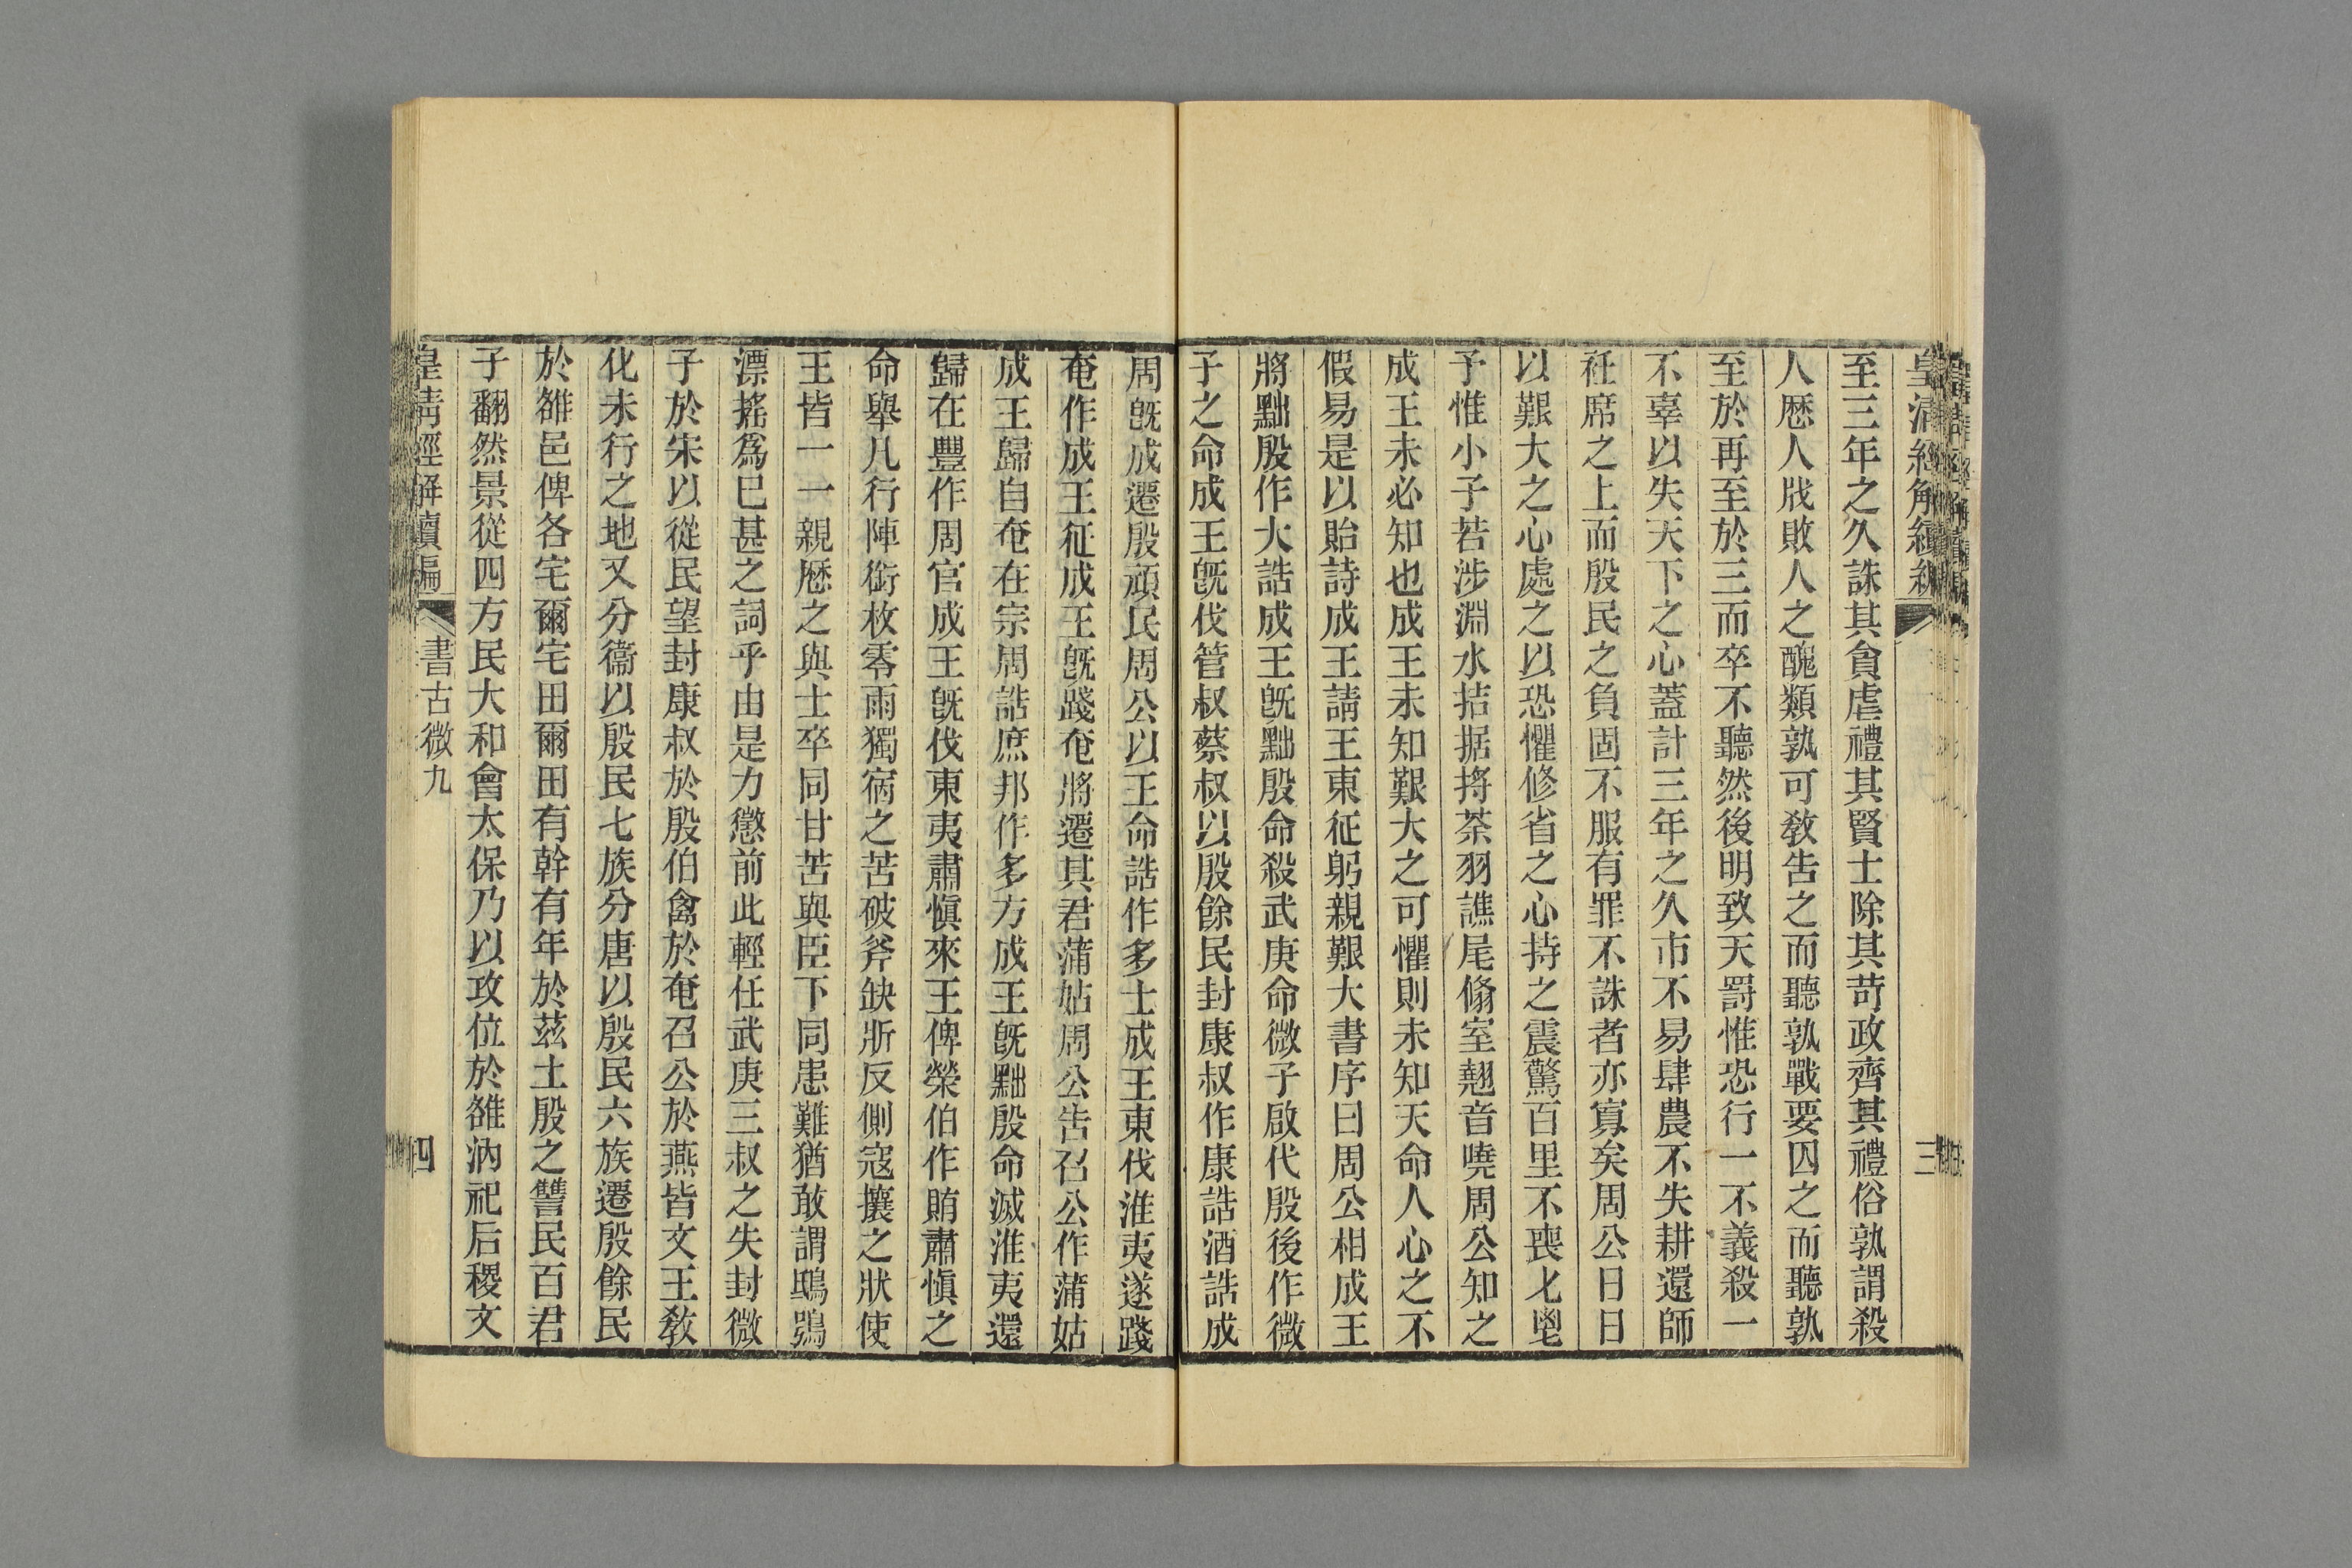 至三年之久誅其貪虐禮其賢士除其苛政齊其禮俗孰謂殺
人歷人戕敗人之醜類孰可敎告之而聽孰戰要囚之而聽孰
至於再至於三而卒不聽然後明致天罰惟恐行一不義殺一
不辜以失天下之心蓋計三年之久市不易肆農不失耕還師
衽席之上而殷民之負固不服有罪不誅者亦寡矣周公日日
以艱大之心處之以恐懼修省之心持之震驚百里不喪匕鬯
予惟小子若涉淵水拮据捋荼羽譙尾翛室翹音嘵周公知之
成王未必知也成王未知艱大之可懼則未知天命人心之不
假易是以貽詩成王請王東征躬親艱大書序曰周公相成王
將黜殷作大誥成王旣黜殷命殺武庚命微子啟代殷後作微
子之命成王旣伐管叔蔡叔以殷餘民封康叔作康誥酒誥成
周旣成遷殷頑民周公以王命誥作多士成王東伐淮夷遂踐
奄作成王征成王旣踐奄將遷其君蒲姑周公告召公作蒲姑
成王歸自奄在宗周誥庶邦作多方成王旣黜殷命滅淮夷還
歸在豐作周官成王旣伐東夷肅愼來王俾榮伯作賄肅愼之
命舉凡行陣銜枚零雨獨宿之苦破斧缺斨反側寇攘之狀使
王皆一一親歷之與士卒同甘苦與臣下同患難猶敢謂鴟鴞
漂搖爲已甚之詞乎由是力懲前此輕任武庚三叔之失封微
子於宋以從民望封康叔於殷伯禽於奄召公於燕皆文王敎
化未行之地又分衞以殷民七族分唐以殷民六族遷殷餘民
於雒邑俾各宅爾宅田爾田有幹有年於茲土殷之讐民百君
子翻然景從四方民大和會太保乃以攻位於雒汭祀后稷文
皇淸經解續編 書古微九 四